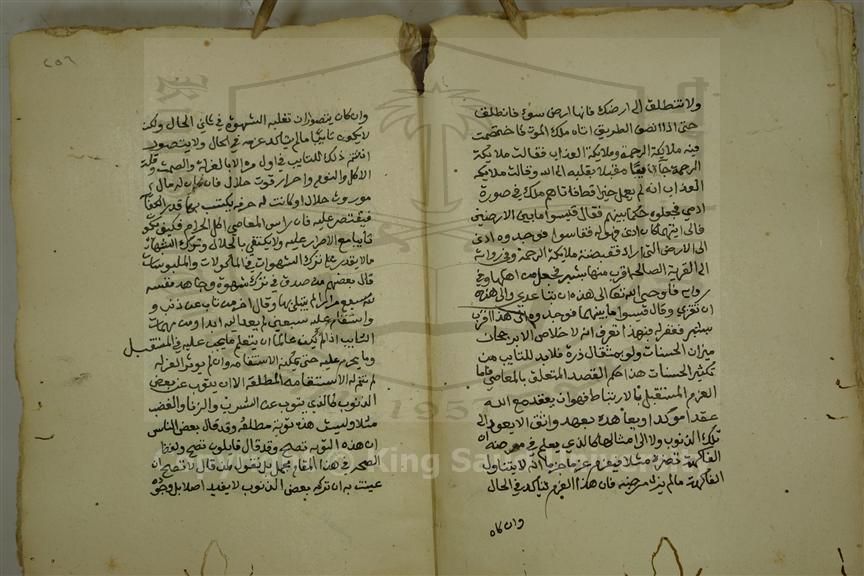 ولا تنطلق الى ارضك فانها ارض سوء فانطلق
حتى اذا انصف الطريق اتاه ملك الموت فاختصمت
فيه ملايكة الرحمة وملايكة العذاب فقالت ملايكة
الرحمة جاء تايبا مقبلا بقلبه الى الله وقالت ملايكة
العذاب انه لم يعمل خيرا قط فاتاهم ملك في صورة
ادمي فجعلوه حكما بينهم فقال قيسوا ما بين الارضين
فالى ايتهما كان ادنى فهو له فقاسوا فوجدوه ادنى
الى الارض التي اراد فقبضته ملايكة الرحمة وفي رواية
الى القرية الصالحة اقرب منها بشبر فجعل من اهلها وفي
رواية فاوحى الله تعالى الى هذه ان تباعدي والى هذه
ان تقربي وقال قيسوا ما بينهما فوجدوه الى هذا اقرب
بشبر فغفر له فبهذا تعرف انه لا خلاص الا برجحان
ميزان الحسنات ولو بمثقال ذرة فلا بد للتايب من
تكثير الحسنات هذا حكم القصد المتعلق بالماضي فاما
العزم المستقبل بالارتباط فهو ان يعقد مع الله
عقدا موكدا ويعاهده بعهد وثق ان لا يعود الى
تلك الذنوب ولا الى امثالها كالذي يعلم في مرضه ان
الفاكهة تضره مثلا فيعزم عزما جزما انه لا يتناول
الفاكهة ما لم يزل مرضه فان هذا العزم يتاكد في الحال
وان كان
٢٥٦
وان كان يتصور ان تغلبه الشهوة في ثاني الحال ولكن
لا يكون تايبا ما لم يتاكد عزمه في الحال ولا يتصور
ان يتم ذلك للتايب في اول مره الا بالعزلة والصمت وقلة
الاكل والنوم واحراز قوت حلال فان كان له مال
موروث حلال او كانت له حرفة يكتسب بها قدر الكفاية
فيقتصر عليه فان راس المعاصي اكل الحرام فكيف يكون
تايبا مع الاصرار عليه ولا يكتفي بالحلال وترك الشبهات
من لا يقدر على ترك الشهوات في الماكولات والملبوسات
قال بعضهم من صدق في ترك شهوة وجاهد نفسه
لله سبع مرار لم يبتلى بها وقال اخر من تاب عن ذنب
واستقام عليه سبع سنين لم يعد اليه ابدا ومن مهمات
التايب اذا لم يكن عالما ان يتعلم ما يجب عليه في المستقبل
وما يحرم عليه حتى يمكنه الاستقامة وان لم يوثر العزلة
لم تتم له الاستقامة المطلقة الا ان يتوب عن بعض
الذنوب كالذي يتوب عن الشرب والزنا والغضب
مثلا وليست هذه توبة مطلقة وقد قال بعض الناس
ان هذه التوبة تصح وقد قال قايلون تصح ولفظ
الصحة في هذا المقام مجمل بل نقول لمن قال لا تصح ان
عنيت به ان تركه بعض الذنوب لا يفيد اصلا بل وجوده